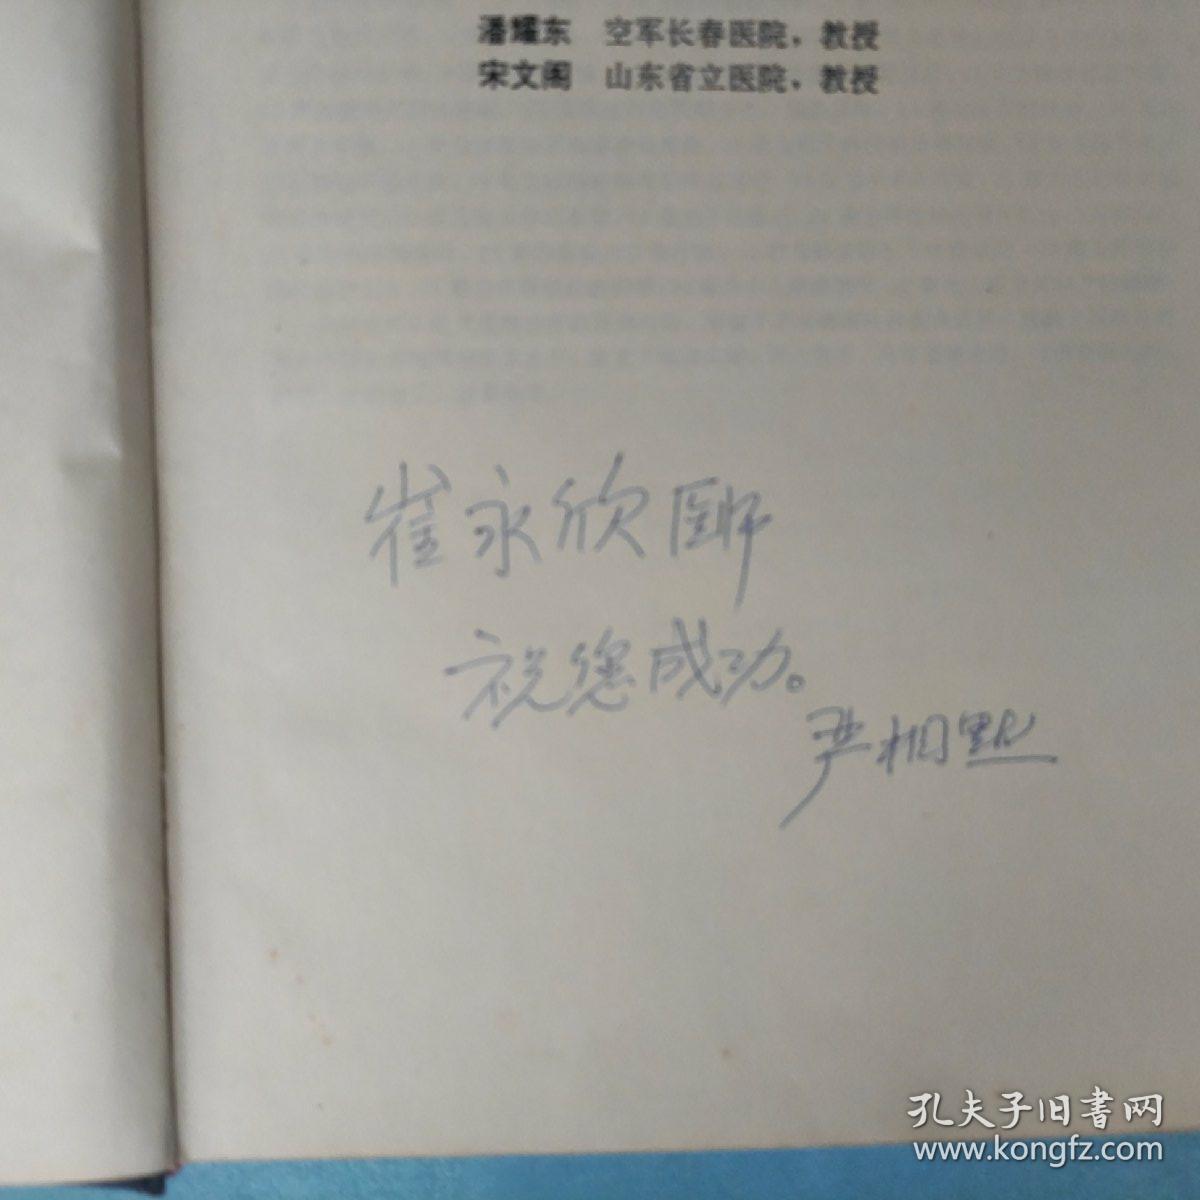 潘耀东 空军长春医院，教授
宋文阁 山东省立医院，教授
崔永欣医师
祝您成功。
严相默
孔夫子旧书网
www.kongfz.com